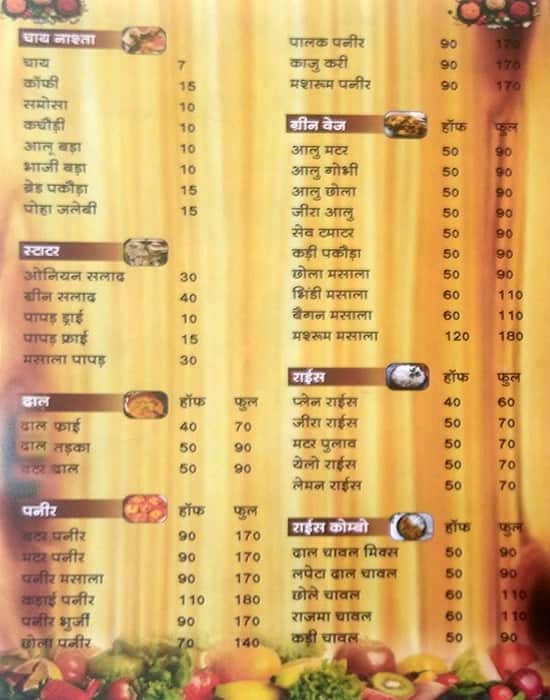 चाय नाश्ता
चाय 7
कॉफी 15
समोसा 10
कचौड़ी 10
आलू बड़ा 10
भाजी बड़ा 10
ब्रेड पकौड़ा 15
पोहा जलेबी 15
स्टाटर
ओनियन सलाद 30
ग्रीन सलाद 40
पापड़ ड्राई 10
पापड़ फ्राई 15
मसाला पापड़ 30
दाल हॉफ फुल
दाल फाई 40 70
दाल तड़का 50 90
बटर दाल 50 90
पनीर हॉफ फुल
बटर पनीर 90 170
मटर पनीर 90 170
पनीर मसाला 90 170
कड़ाई पनीर 110 180
पनीर भुर्जी 90 170
छोला पनीर 70 140
पालक पनीर 90 170
काजु करी 90 170
मशरूम पनीर 90 170
ग्रीन वेज हॉफ फुल
आलु मटर 50 90
आलु गोभी 50 90
आलु छोला 50 90
जीरा आलु 50 90
सेव टमाटर 50 90
कड़ी पकौड़ा 50 90
छोला मसाला 50 90
भिंडी मसाला 60 110
बैगन मसाला 60 110
मश्रूम मसाला 120 180
राईस हॉफ फुल
प्लेन राईस 40 60
जीरा राईस 50 70
मटर पुलाव 50 70
येलो राईस 50 70
लेमन राईस 50 70
राईस कोम्बो हॉफ फुल
दाल चावल मिक्स 50 90
लपेटा दाल चावल 50 90
छोले चावल 60 110
राजमा चावल 60 110
कड़ी चावल 50 90